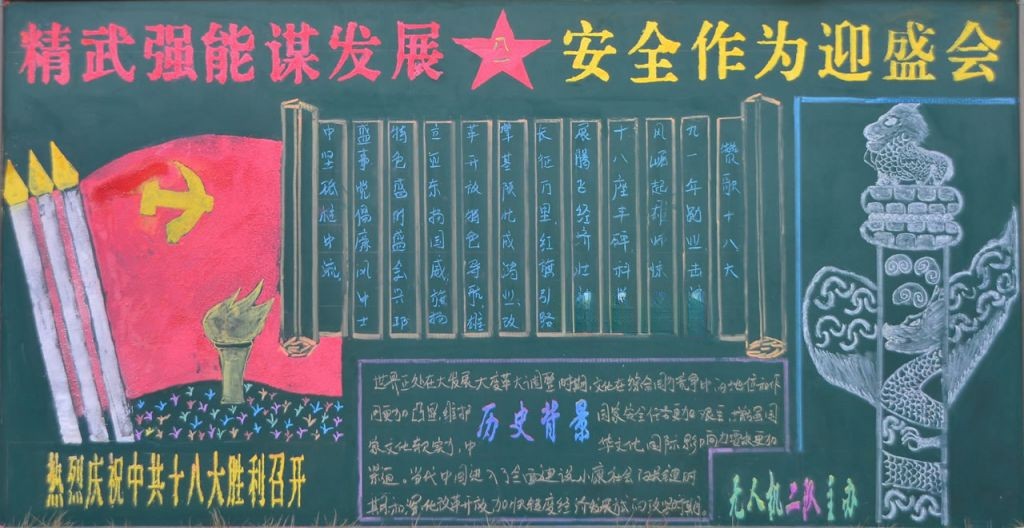 精武强能谋发展 八一 安全作为迎盛会
赞歌十八大
九一年
风崛起雄师惊
十八座丰碑科
展腾飞经济壮
长征万里红旗引路
肇基陕北成鸿业改
革开放
立亚东扬国威旗扬
特色盛时盛会兴邦
盛事悦倡廉风中士
中坚砥柱中流
历史背景
世界正处在大发展大变革大调整时期,文化在综合国力竞争中的地位和作
用更加凸显维护 国家安全任务更加艰巨,增强国
家文化软实力,中 华文化国际影响力要求更加
紧迫。当代中国进入了全面建设小康社会的关键时
期和深化改革开放,加快转变经济发展方式的攻坚时期。
热烈庆祝中共十八大胜利召开
无人机二队主办